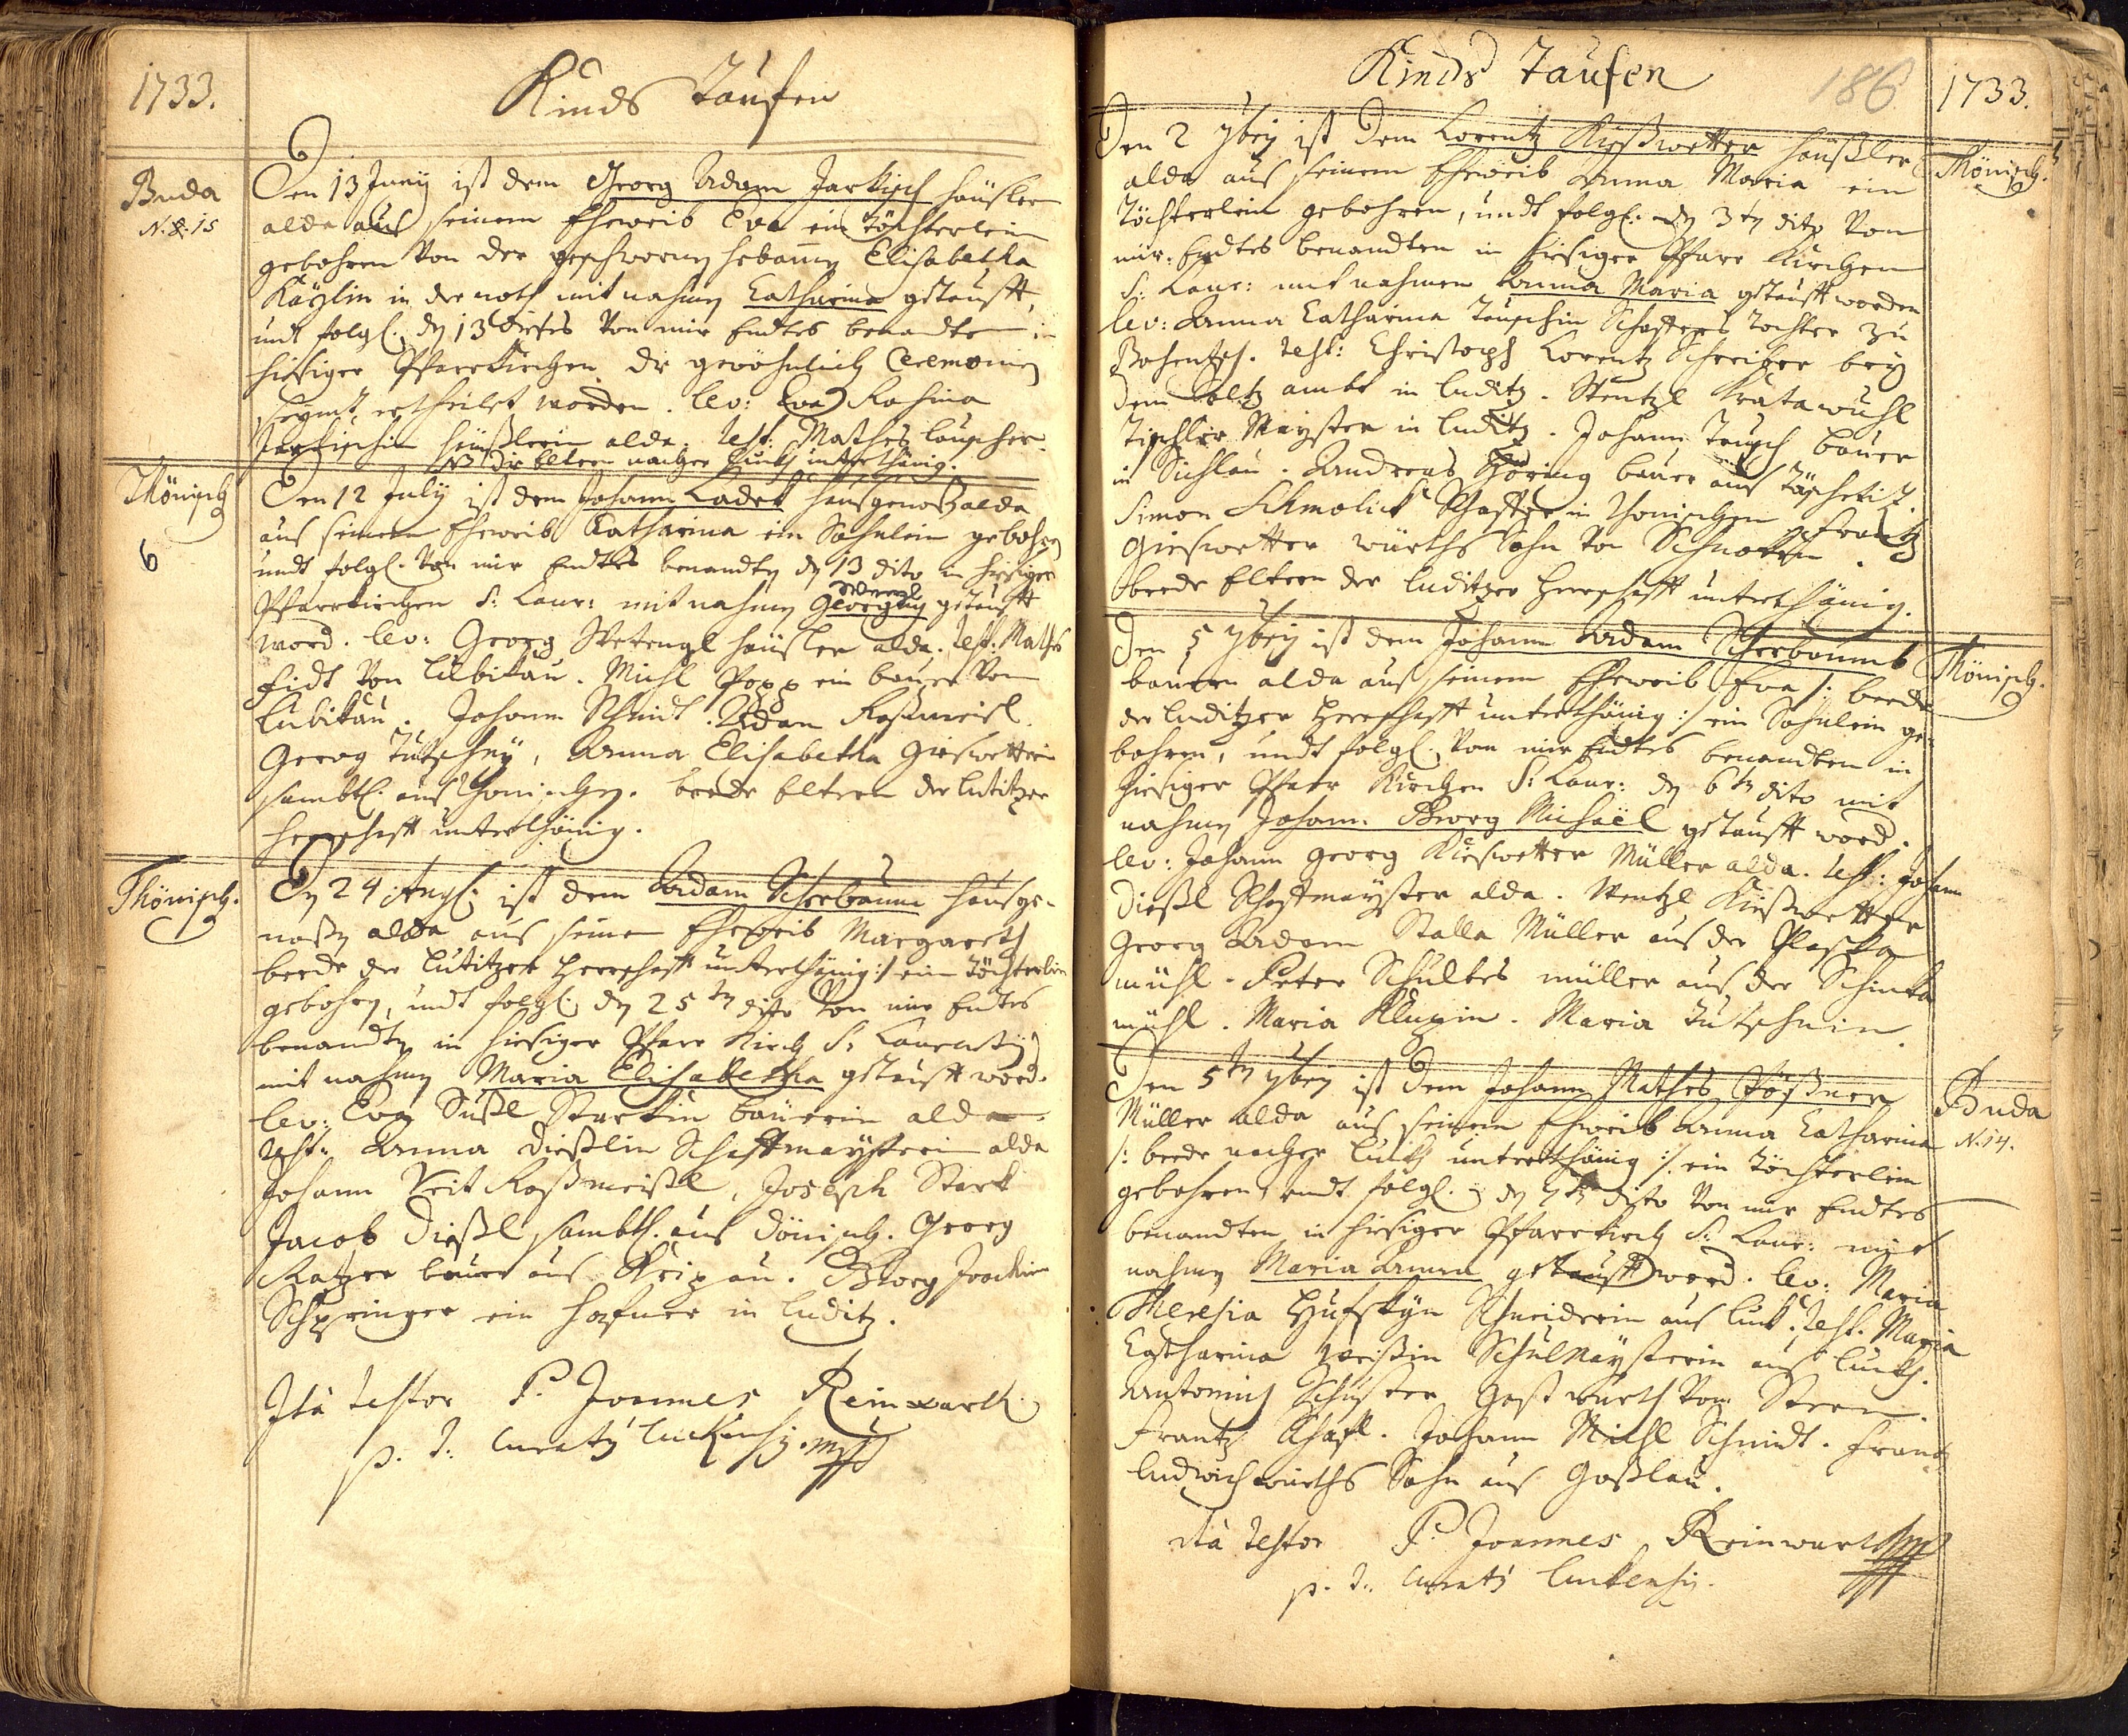 1733.
Kinds Taufen
Buda
N. 8. 15
Den 13 Juny ist dem Georg Adam Jarkisch häusler
alda aus seinem Eheweib Eva ein töchterlein
gebohren von der geschworny hebamy Elisabetha
Käÿlin in der noth mit nahmen Catharina getaufft,
undt folgl. den 13 dieses von mir Endtes benandten in
hiesiger Pfarrkirchen die gewöhnlich Ceremonien
ertheilet worden. lev: Eva Rosina
häußlerin alda. Test: Mathes
NB die Eltern nacher Luckh unterthänig.
Thönisch
6
Den 12 July ist dem Johann Ladek hausgenoß alda
aus seinem Eheweib Catharina ein Söhnlein gebohren
undt folgl. von mir Endtes benandten den 13 dito in hiesiger
Wenzl
Pfarrkirchen S: Laur: mit nahmen Georgius getaufft
word. lev: Georg häusler alda. Test: Mathes
Fidt von Lubikau. Michl Popp ein bauer von
Lubikau. Johann Schmidt. Adam Roßmeisl.
Georg Tutschny, Anna Elisabetha Gieswetterin
sambtl. aus Thonischen. beede Eltern der Lutitzer
Herrschafft unterthänig.
Thönisch.
Den 24 Aug: ist dem Adam Scherbaum hausge-
noßen alda aus seinem Eheweib Margareth
beede der Lutitzer Herrschafft unterthänig :/ ein töchterlein
gebohren, undt folgl. den 25ten dito von mir Endtes
benandten in hiesiger Pfarr Kirch S: Laurentij
mit nahmen Maria Elisabetha getaufft word.
lev: Eva Starkin bäuerin alda.
Test: Anna Dießlin Schaffmaysterin alda
Johann Veit Roßmeisl, Joseph Stark
Jacob Dießl sambtl. aus Dönisch. Georg
Ratzer bauer aus . Georg Joachim
Schpringer ein hafner in Luditz.
Ita testor P. Joannes Reinwarth
p. t: Curatus Luckensis mpp
Kinds Taufen
186
1733.
Thönisch.
Den 2 7bris ist dem Lorentz Kießwetter häußler
alda aus seinem Eheweib Anna Maria ein
Töchterlein gebohren, undt folgl. den 3ten dito von
mir Endtes benandten in hiesiger Pfarr Kirchen
S: Laur: mit nahmen Anna Maria getaufft worden
lev: Anna Catharina Schaffers tochter zu
. Test: Christoph Lorentz Schreiber beÿ
dem ambt in Luditz. Wentzl
Tischler Mayster in Luditz. Johann Teusch bauer
in Sichlau. Andreas bauer aus
Simon Schmolick Schaffer in Thonischen. Frantz
Gieswetter würths Sohn von
beede Eltern der Luditzer Herrschafft unterthänig.
Thönisch.
Den 5 7bris ist dem Johann Adam Scherbaum
bauern alda aus seinem Eheweib Eva /: beede
der Luditzer Herrschafft unterthänig :/ ein Söhnlein ge-
bohren, undt folgl. von mir Endtes benandten in
hiesiger Pfarr Kirchen S: Laur: den 6ten dito mit
nahmen Johann Georg Michaël getaufft word.
lev: Johann Georg Kieswetter Müller alda. Test: Johann
Dießl Schaffmayster alda. Wentzl Kießwetter
Georg Adam Stalla Müller aus der Plaschka
mühl. Peter Schultes müller aus der Schinka
mühl. Maria Klugin. Maria Tutschnin.
Buda
N. 14.
Den 5ten 7bris ist dem Johann Mathes Pößner
Müller alda aus seinem Eheweib Anna Catharina
/: beede nacher Luckh unterthänig :/ ein Töchterlein
gebohren, undt folgl. den 7ten dito von mir Endtes
benandten in hiesiger Pfarrkirch S: Laur: mit
nahmen Maria Anna getaufft word. lev: Maria
Theresia Schneiderin aus Luck. Test. Maria
Catharina Weißin Schulmaysterin aus Luckh.
Antonius Schuster Gastwürth von
Frantz . Johann Michl Schmidt. Frantz
Ludwich würths Sohn aus Goßlau.
Ita testor P. Joannes Reinwarth mpp
p. t: Curatus Luckensis.